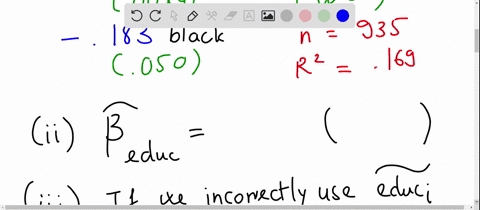 − .183 black n = 935
(.050) R² = .169
(ii) β̂educ = ( )
(iii) If we incorrectly use